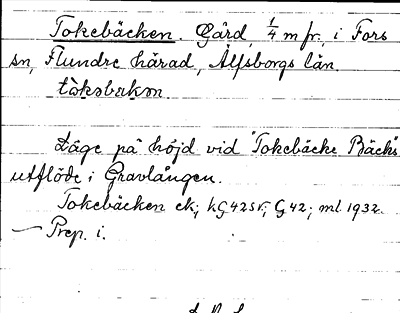 Tokebäcken. Gård, 1/4 mfr., i Fors
sn, Flundre härad, Älfsborgs län.
tòkəbakən.
Läge på höjd vid "Tokebäcke Bäck"s
utflöde i Gravlången.
Tokebäcken ek; kG42sv; G42; ml 1932.
— Prep. i.